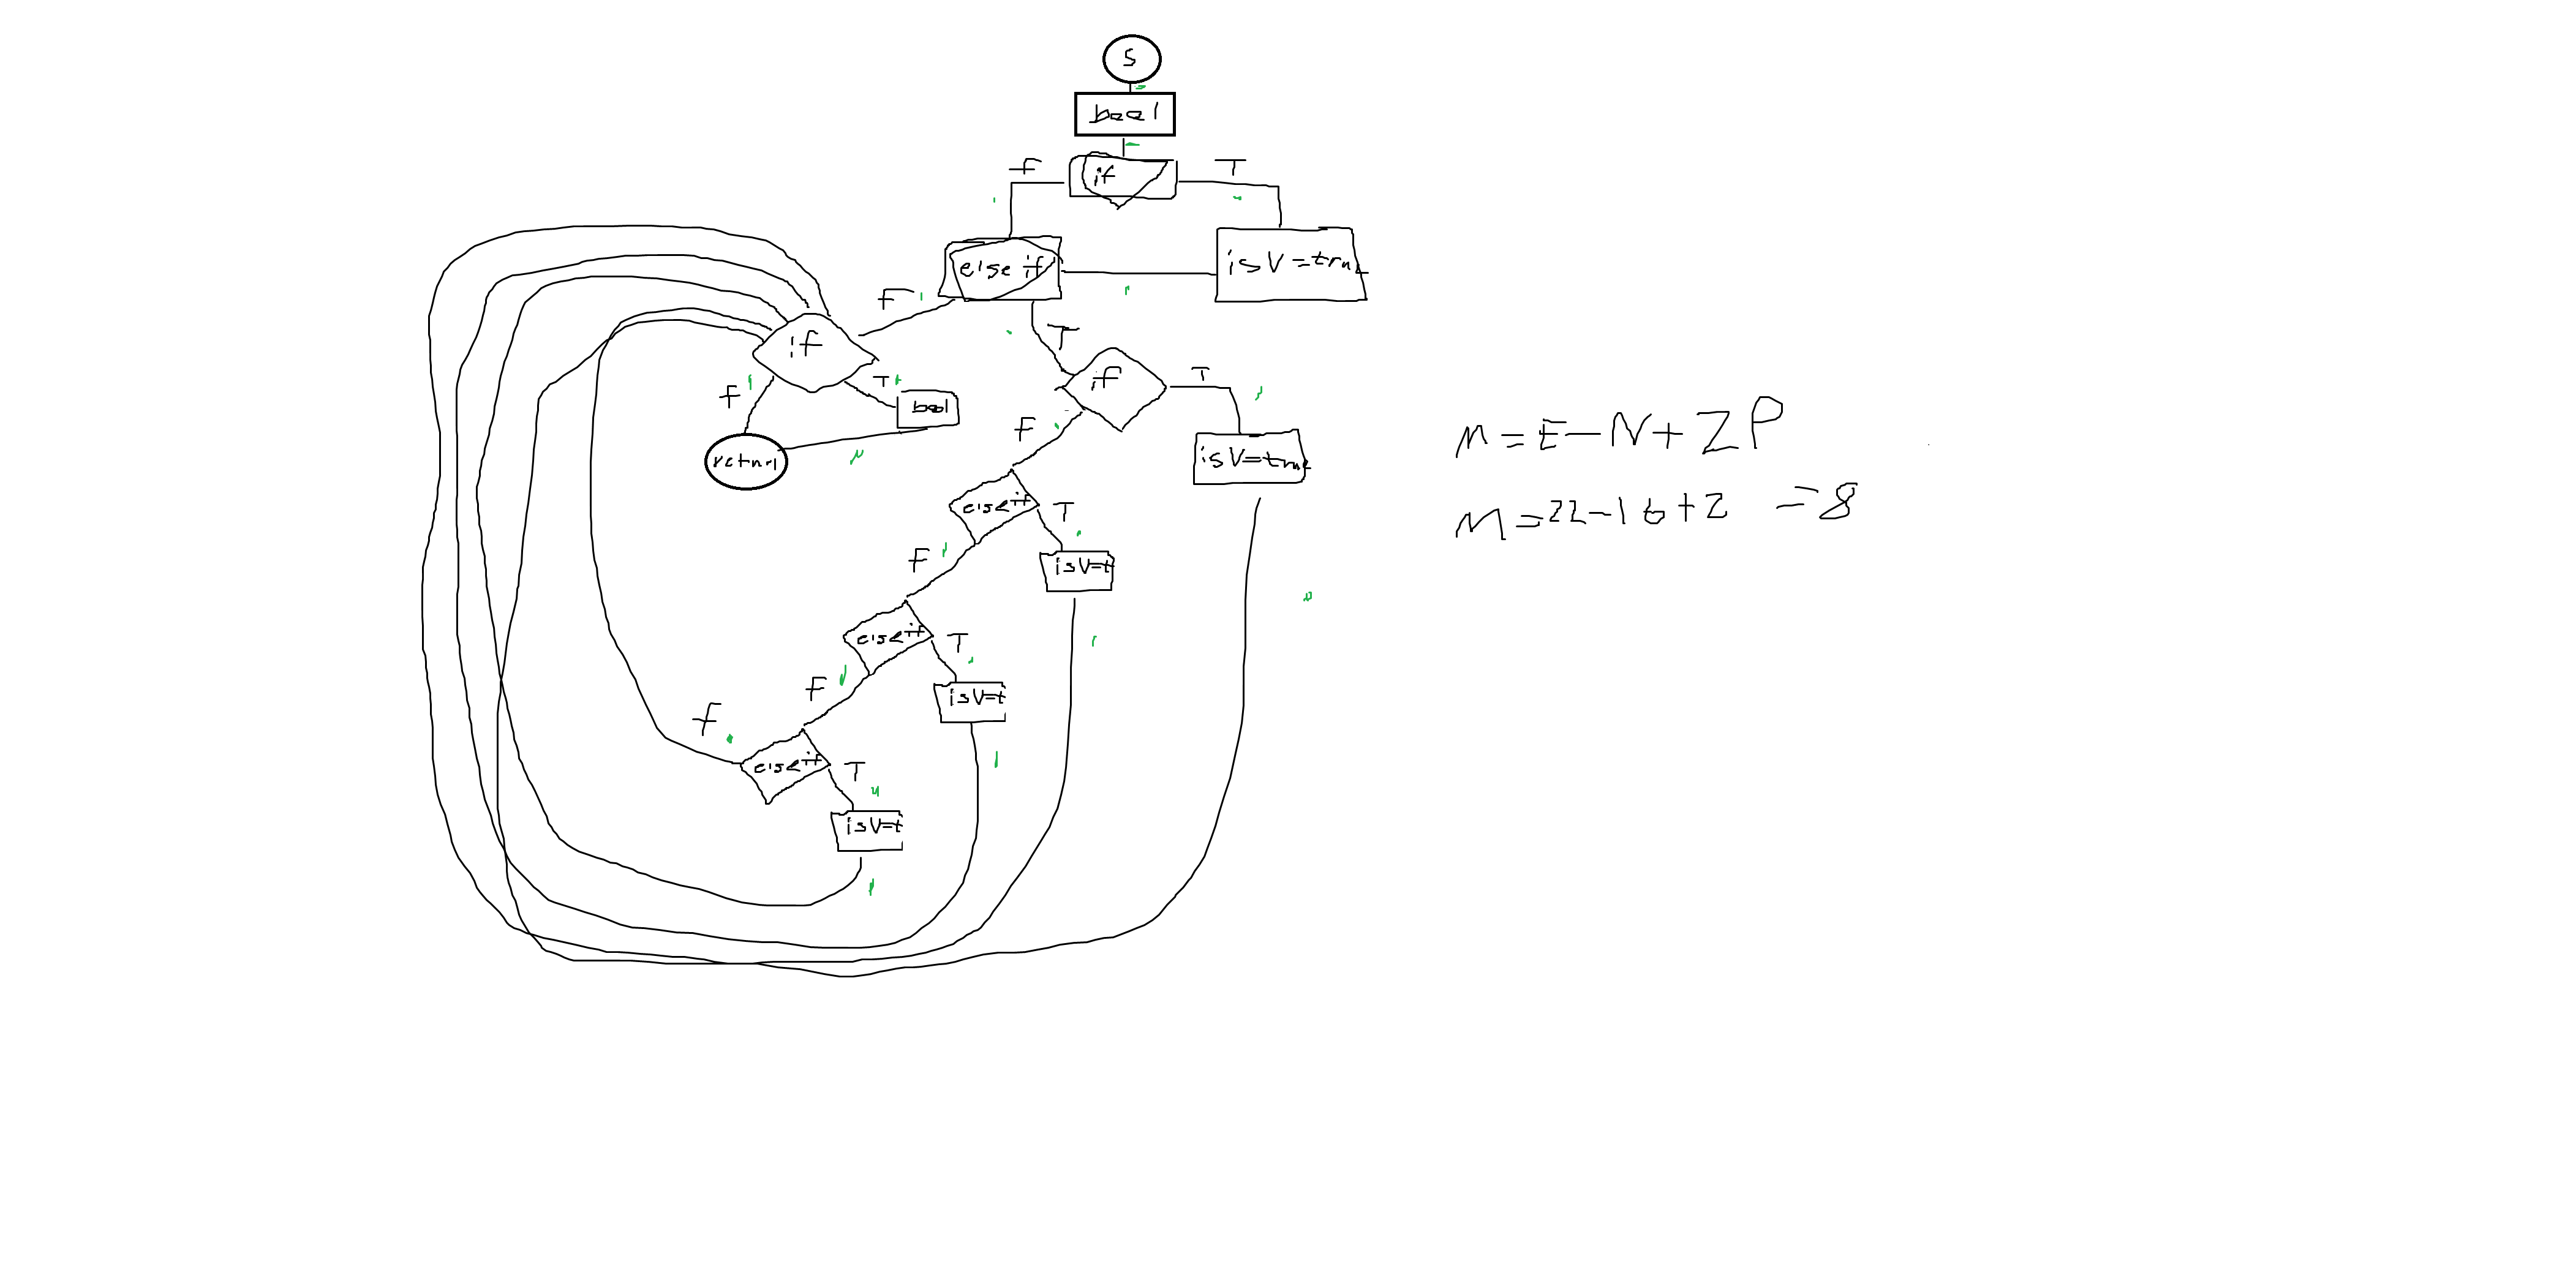 S
bool
f
if
T
else if
isV=true
F
T
if
F
T
bool
return
if
T
isV=true
F
else if
T
isV=t
F
else if
T
isV=t
F
f
else if
T
isV=t
M=E-N+2P
M=22-16+2 =8